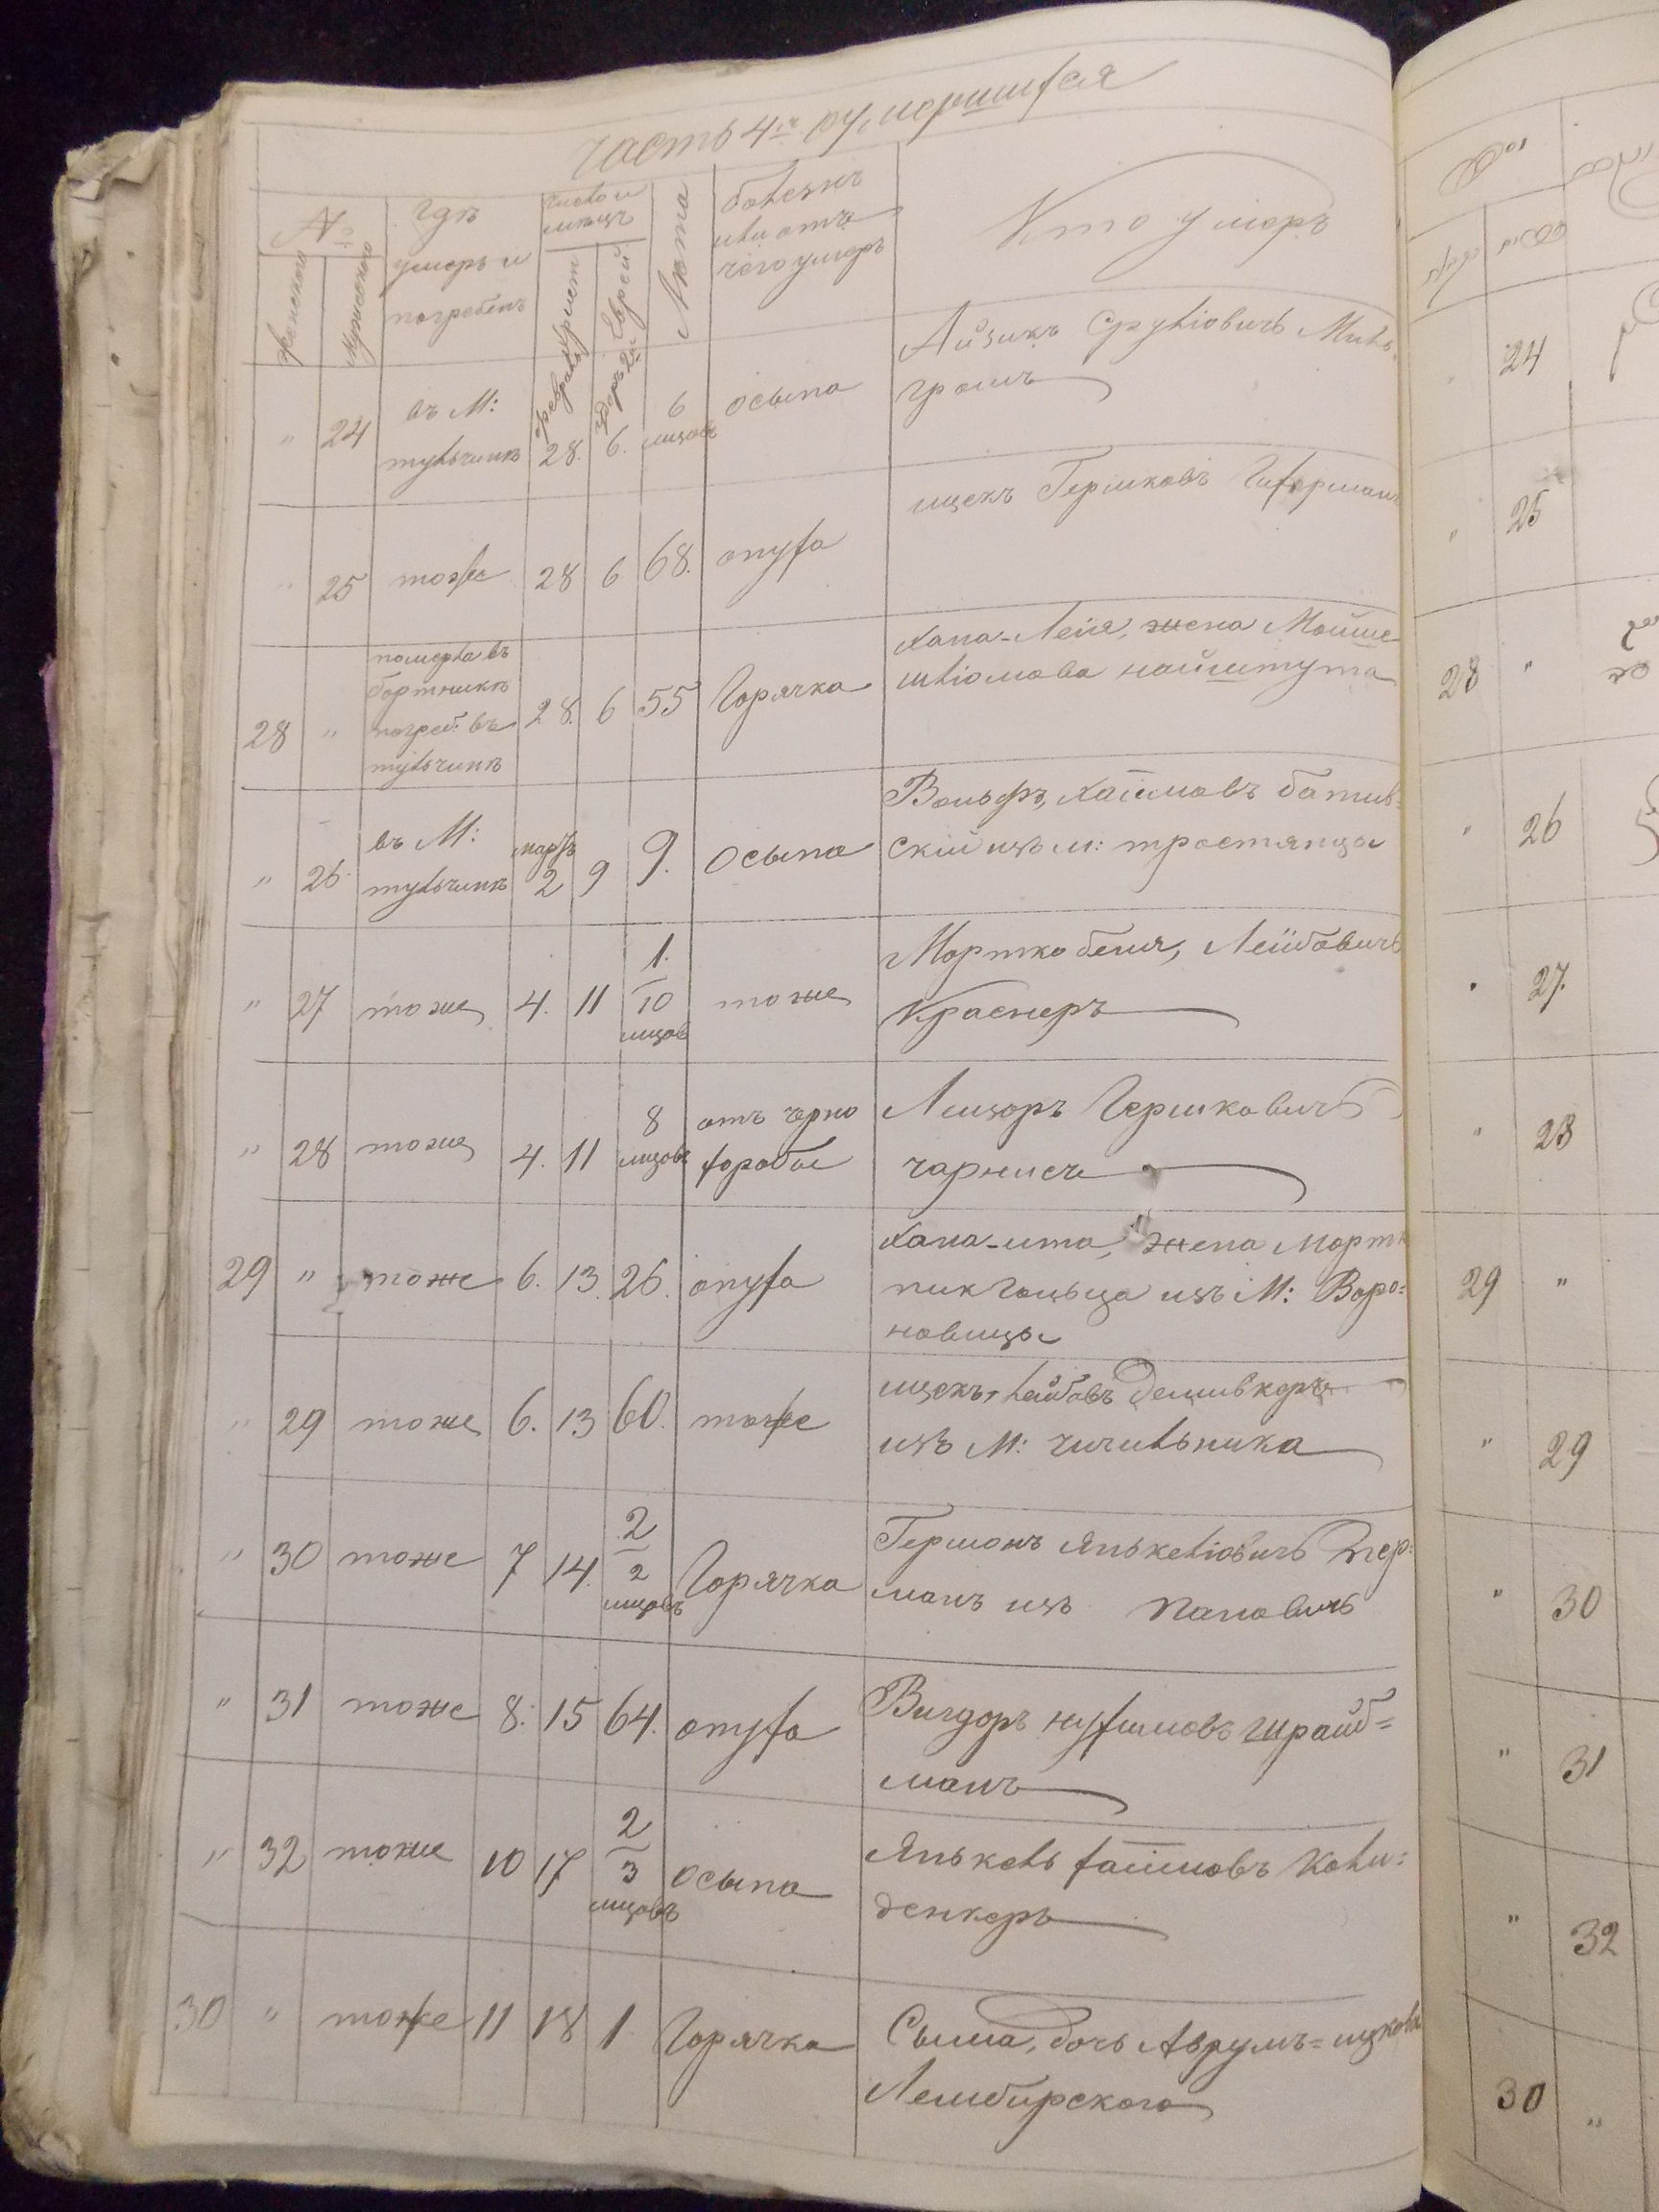 Часть 4я о умершихся
№
Женского
Мужеского
Гдѣ
умеръ и
погребенъ
Число и
мѣсяцъ
Христ
Еврей
Лѣта
болезнь
или отъ
чего умеръ
Кто умеръ
" 24 въ М: тульчинѣ февраль 28. 6. 6 мцовъ осьпа Айзикъ Срулiовичъ Миль=
громъ
" 25 тоже 28 6 68. опуха ицекъ Гершковъ
28 " померла въ
бортникѣ
погреб. въ
тульчинѣ
28. 6 55 Горячка Хана-Лея, жена Мойше
шлiомова найштута
" 26 въ М:
тульчинѣ
мартъ
2 9 9. Осьпа Вольфъ, Хаимовъ батив=
скiй изъ м: тростянца
" 27 тоже 4. 11 1. 10 мцовъ тоже Мортко беня, Лейбовичъ
Краснеръ
" 28 тоже 4. 11 8 мцовъ отъ черно
хоробы
Лейзоръ Гершковичъ
29 " тоже 6. 13. 26. опуха Хана-ита, жена Мортк
изъ М: Воро=
новицы
" 29 тоже 6. 13 60. тоже ицекъ, лейбовъ
изъ М: чичильника
" 30 тоже 7 14. 2 2 мцовъ Горячка Гершонъ Янькелiовичъ
манъ изъ
" 31 тоже 8. 15 64. опуха Вигдоръ нухимовъ шрайб=
манъ
" 32 тоже 10 17 2 3 мцовъ Осьпа Янькель хаимовъ Коли=
денкеръ
30 " тоже 11 18 1 Горячка Сыма, дочь Аврумъ=ицкова
Лембирского
24
" 25
28 "
" 26
27.
" 28
29 "
" 29
" 30
" 31
" 32
30 "